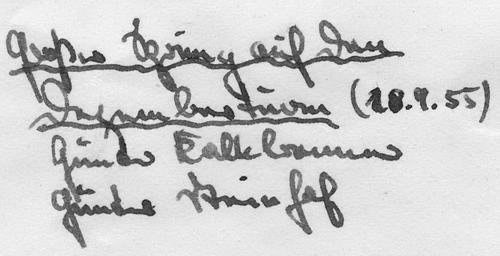 Großer Sprung auf den
Dezemberturm (18.9.55)
Günter Kalkbrenner
Günter